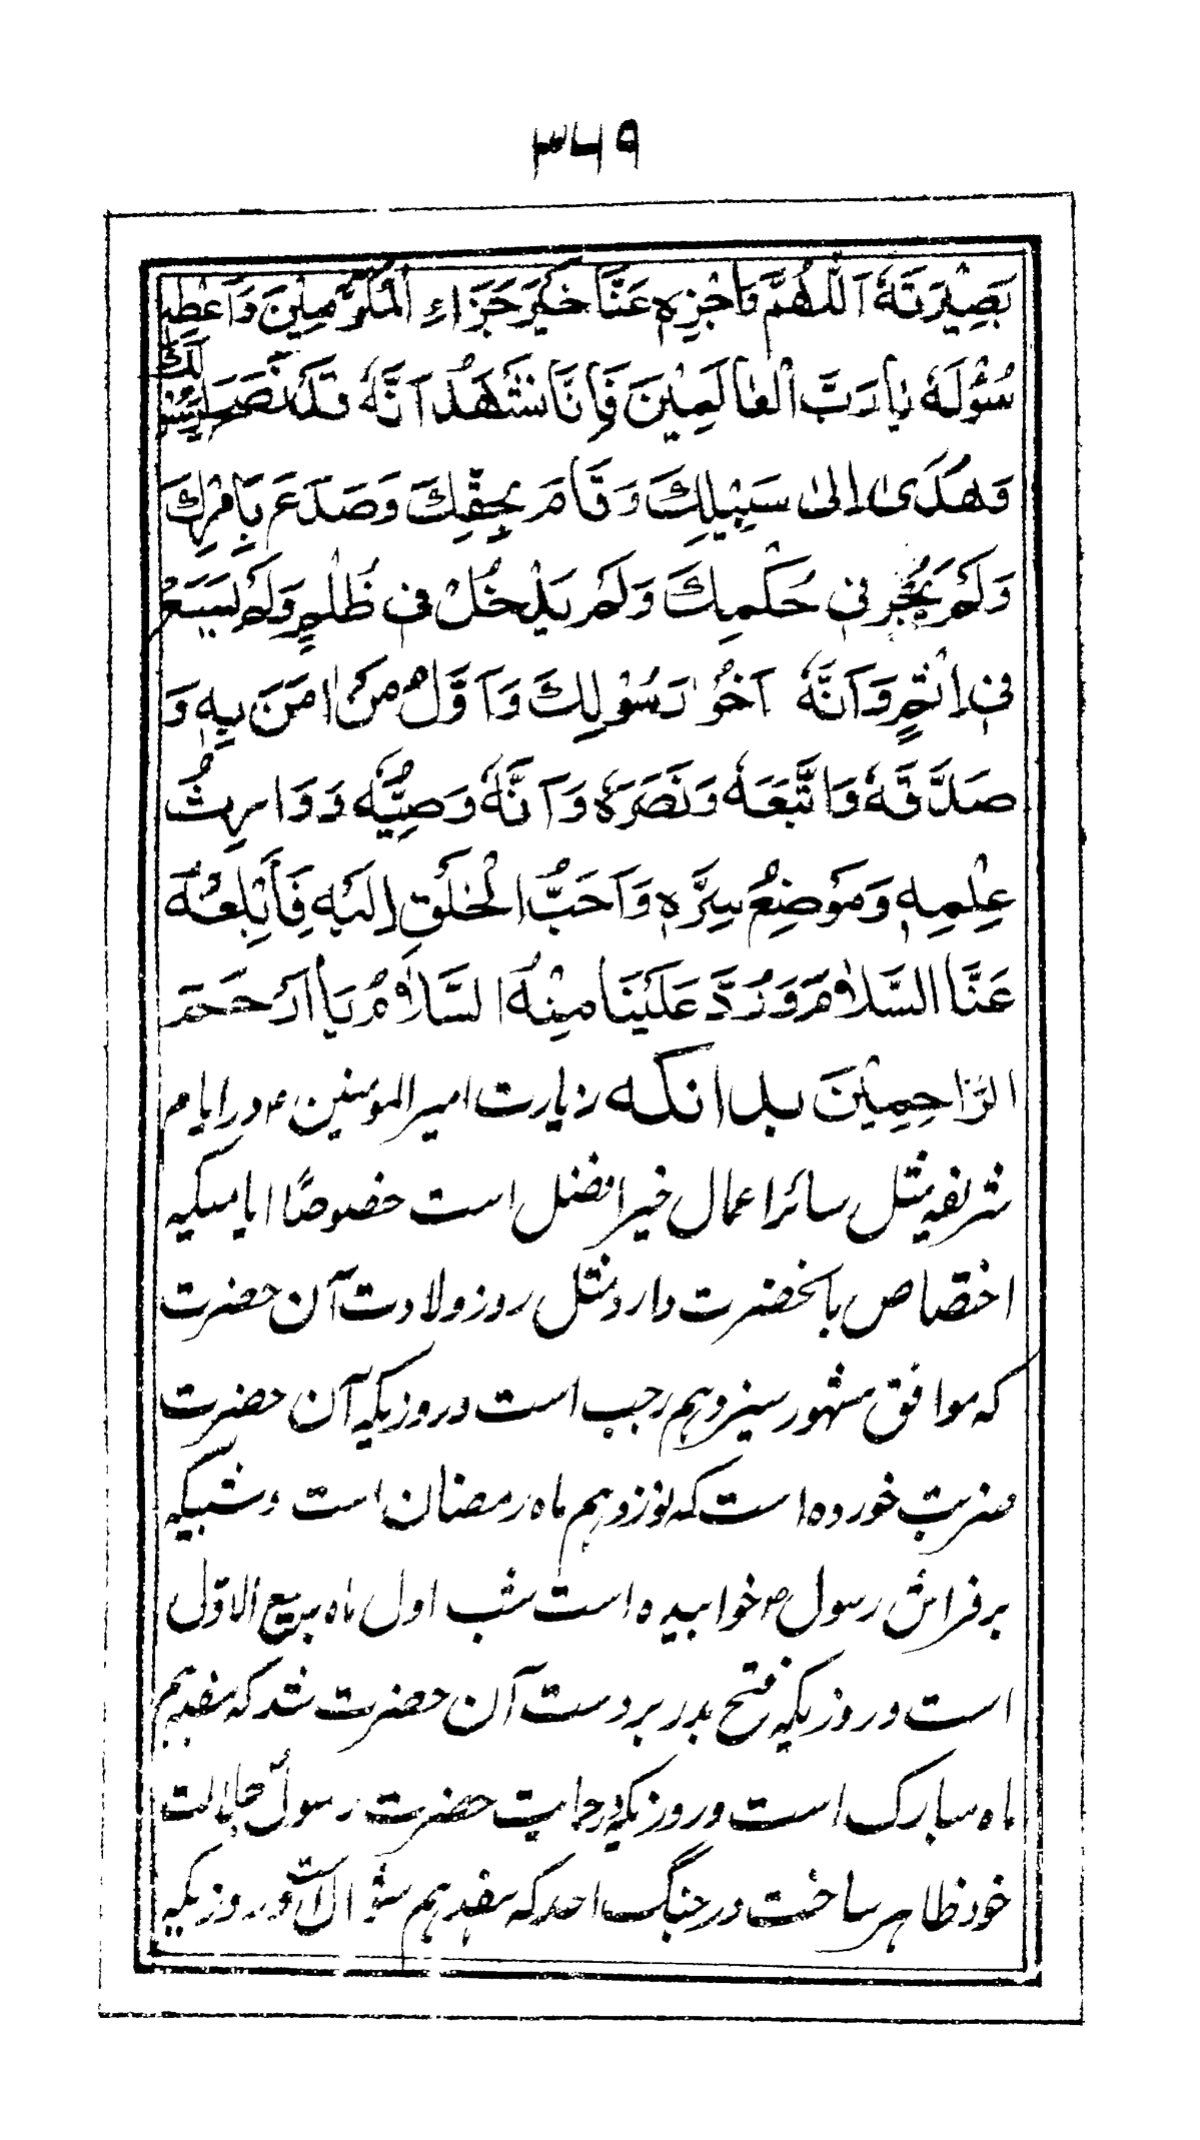 ۳۶۹
بَصِيْرَتَهٗ اَللّٰهُمَّ وَاجْزِهٖ عَنَّا خَيْرَ جَزَاءِ الْمُكَرَّمِيْنَ وَاَعْطِهٖ
سُؤْلَهٗ يٰا رَبَّ الْعٰالَمِيْنَ فَاِنَّا نَشْهَدُ اَنَّهٗ قَدْ نَصَحَ لِرَسُوْلِكَ
وَهَدٰى اِلىٰ سَبِيْلِكَ وَقَامَ بِحَقِّكَ وَصَدَعَ بِاَمْرِكَ
وَلَمْ يَجُرْ فِىْ حُكْمِكَ وَلَمْ يَدْخُلْ فِىْ ظُلْمٍ وَلَمْ يَسَعْ
فِىْ اِثْمٍ وَاَنَّهٗ اَخُوْ رَسُوْلِكَ وَاَوَّلُ مَنْ اٰمَنَ بِهٖ وَ
صَدَّقَهٗ وَاتَّبَعَهٗ وَنَصَرَهٗ وَاَنَّهٗ وَصِيُّهٗ وَوَارِثُ
عِلْمِهٖ وَمَوْضِعُ سِرِّهٖ وَاَحَبُّ الْخَلْقِ اِلَيْهِ فَاَبْلِغْهُ
عَنَّا السَّلٰامَ وَرُدَّ عَلَيْنَا مِنْهُ السَّلٰامُ يَا اَرْحَمَ
الرَّاحِمِيْنَ بدانکه زیارت امیرالمؤمنین ۴ در ایام
شریفه مثل سائر اعمال خیر افضل است خصوصًا ایامیکه
اختصاص بآنحضرت دارد مثل روز ولادت آن حضرت
که موافق مشهور سیزدهم رجب است و روزیکه آن حضرت
ضربت خورده است که نوزدهم ماه رمضان است و شبیکه
بر فراش رسول ص خوابیده است شب اول ماه ربیع الاول
است و روزیکه فتح بدر بر دست آن حضرت شد که هفدهم
ماه مبارک است و روزیکه در حمایت حضرت رسول ص جلالت
خود ظاهر ساخت در جنگ احد که هفدهم شوال است و روزیکه